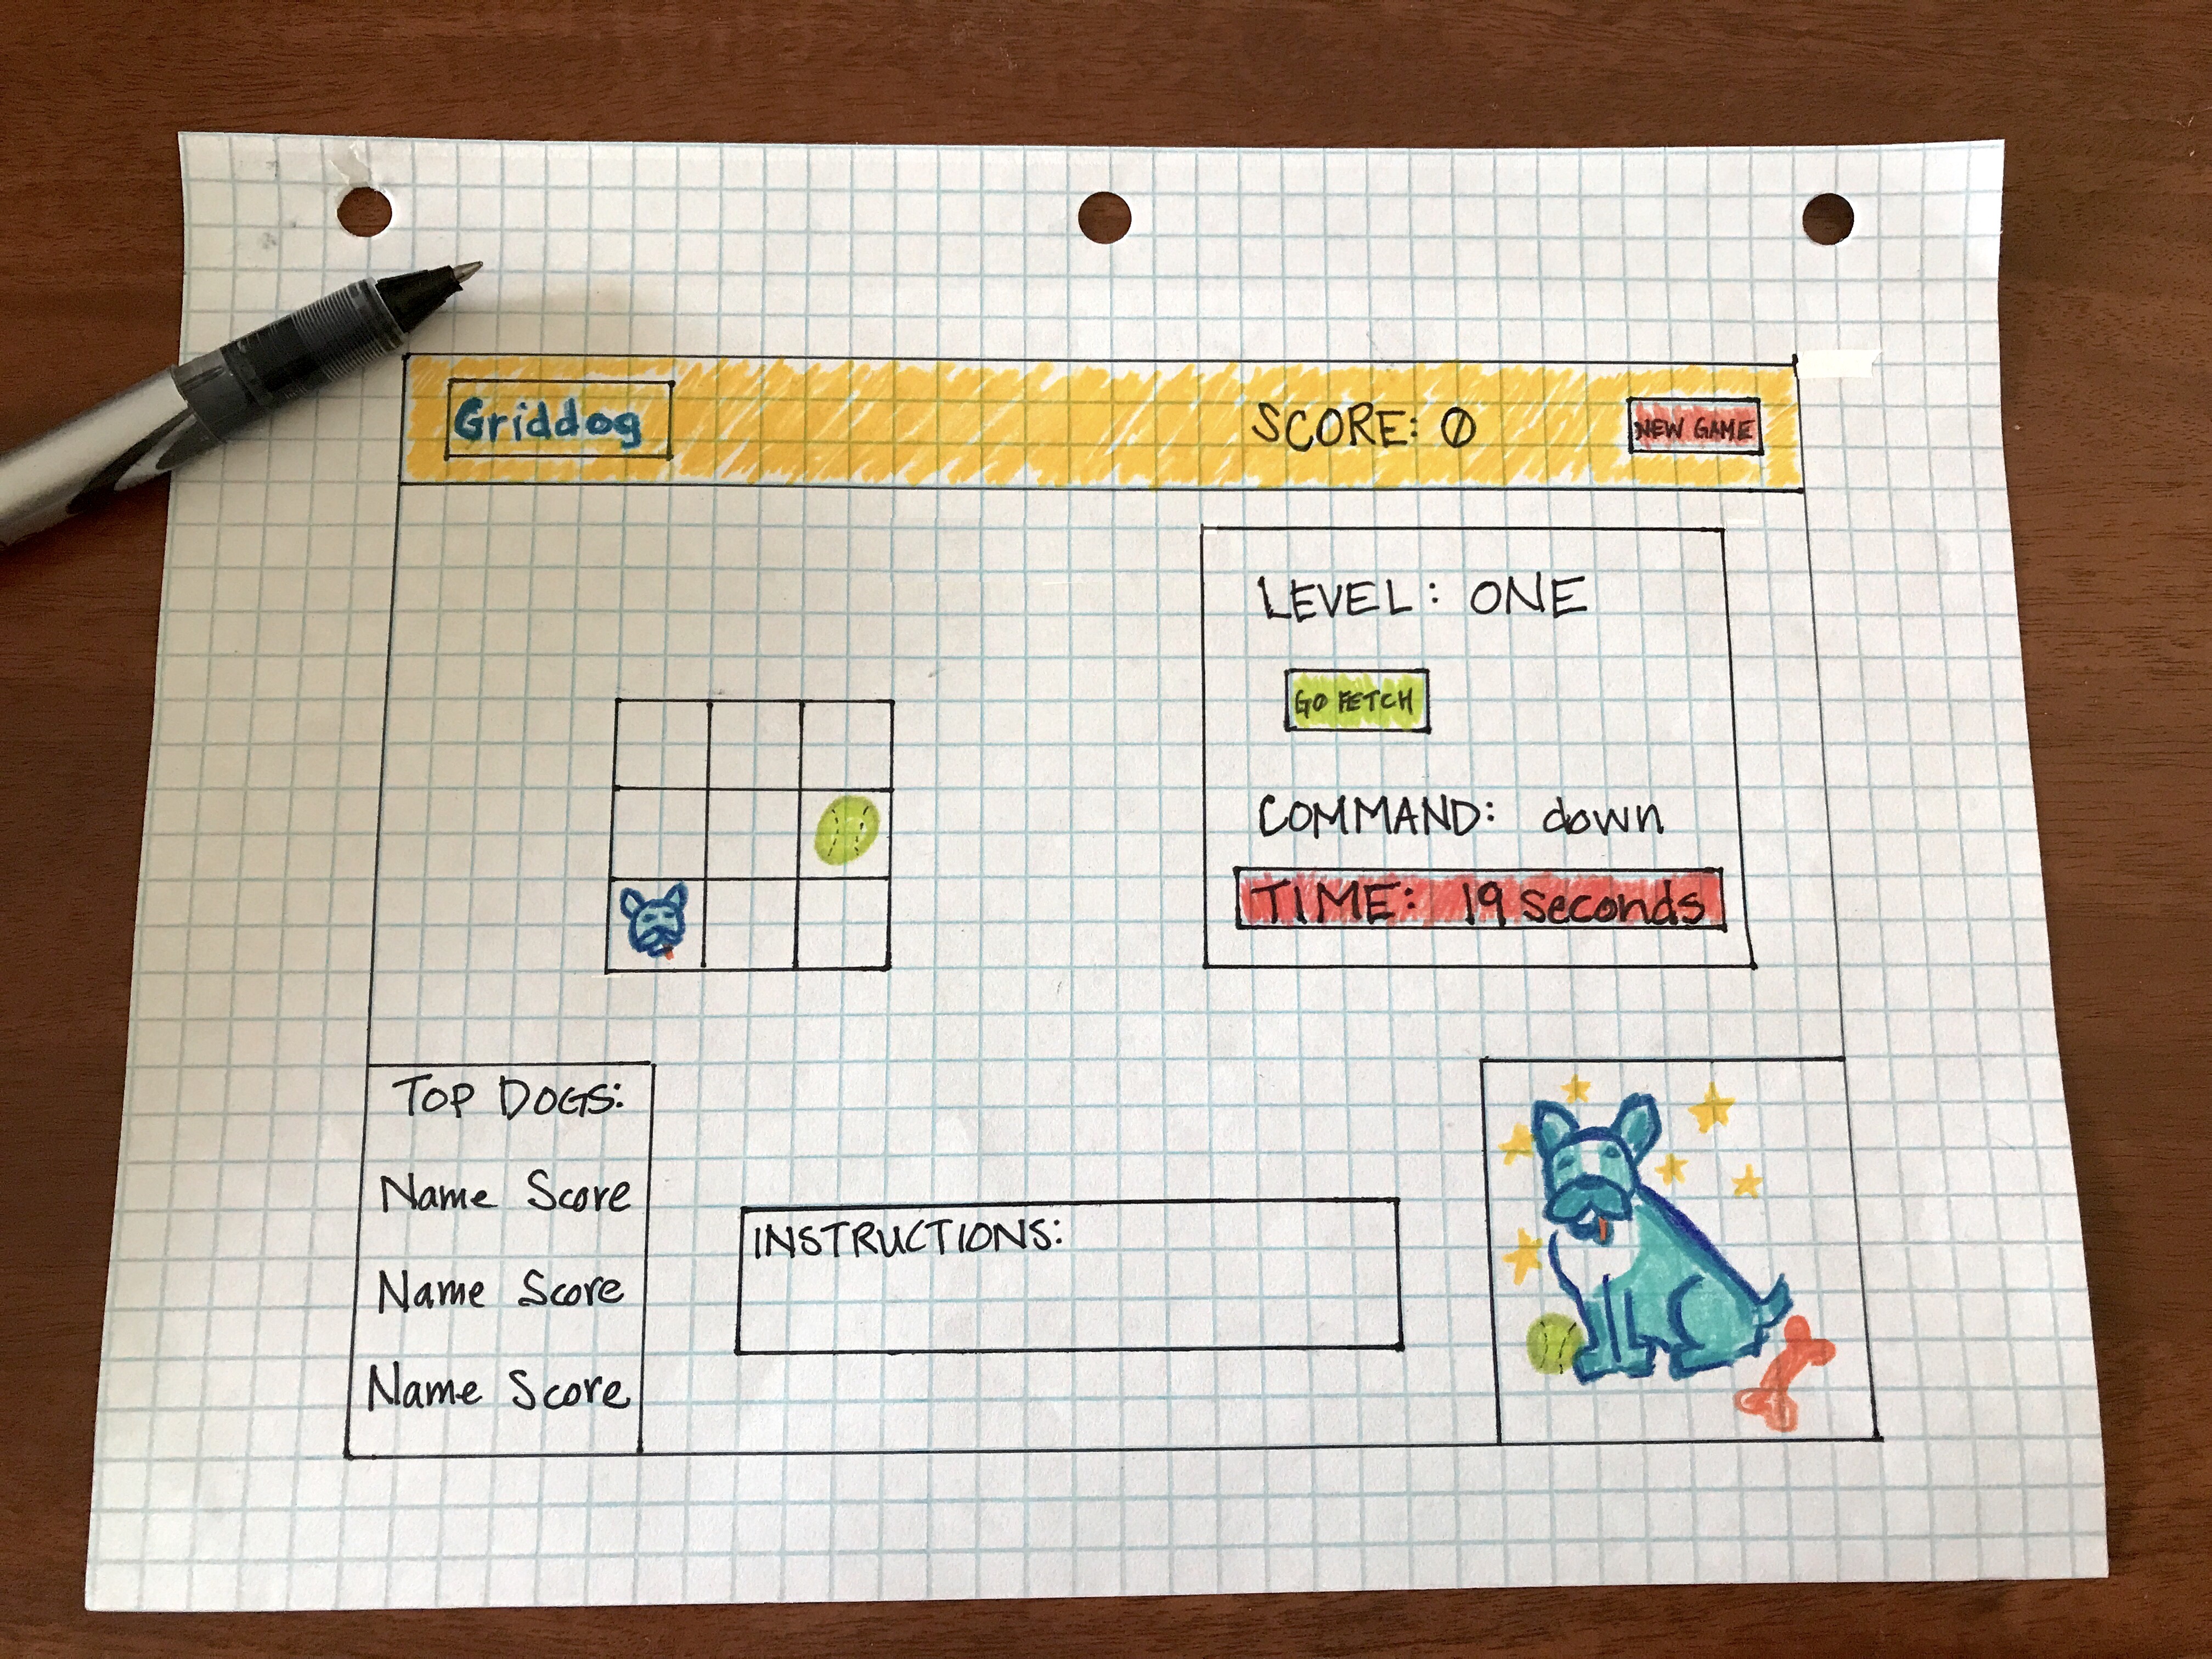 Griddog
SCORE: 0
NEW GAME
LEVEL: ONE
GO FETCH
COMMAND: down
TIME: 19 seconds
TOP DOGS:
Name Score
Name Score
Name Score
INSTRUCTIONS: